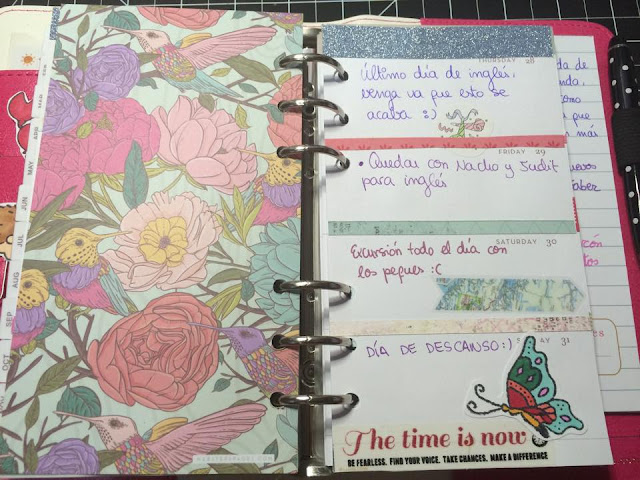 MAR
APR
MAY
JUN
JUL
AUG
SEP
OCT
THURSDAY 28
Último día de inglés,
venga va que esto se
acaba :)
FRIDAY 29
• Quedar con Nacho y Judit
para inglés
SATURDAY 30
Excursión todo el día con
los peques :C
DÍA DE DESCANSO :)
31
The time is now
BE FEARLESS. FIND YOUR VOICE. TAKE CHANCES. MAKE A DIFFERENCE
da de
como
que
más
Faber